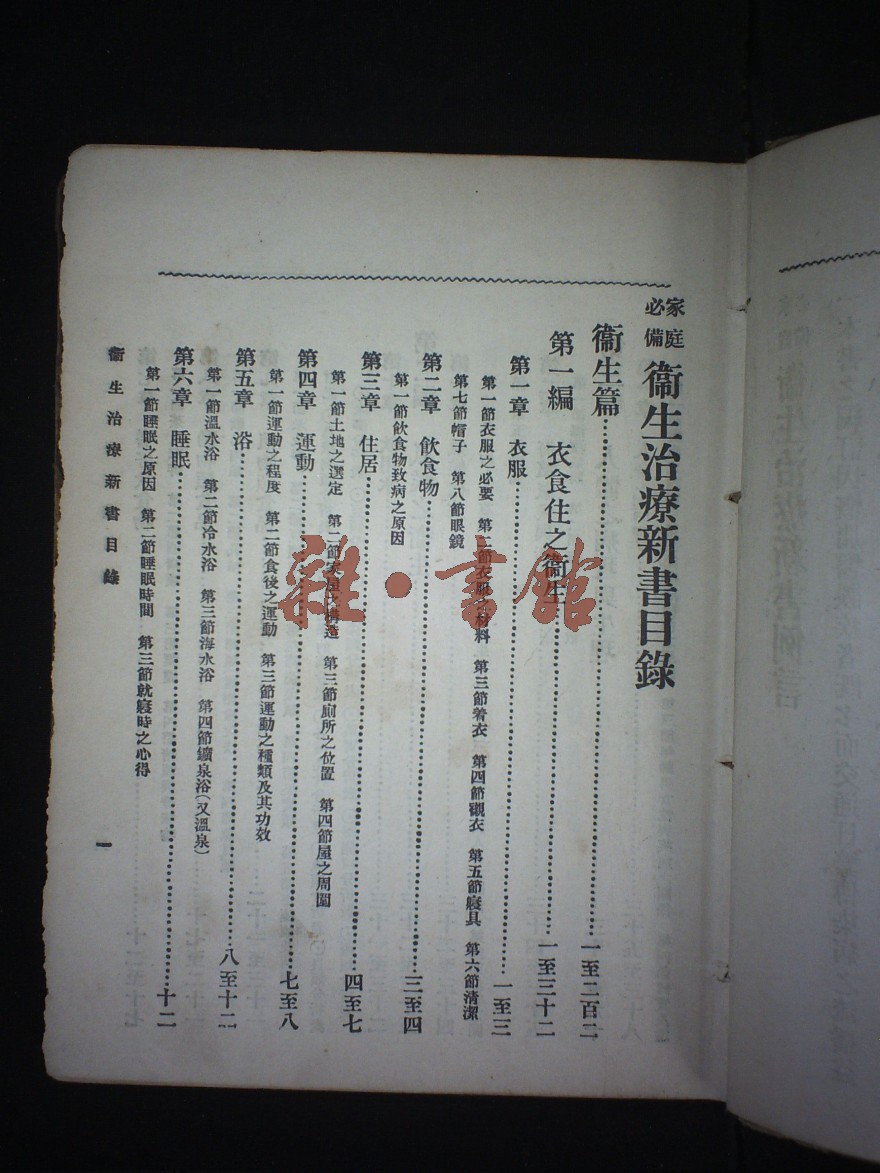 家庭
必備
衞生治療新書目錄
衞生篇……一至二百二
第一編　衣食住之衞生……一至三十二
第一章　衣服……一至三
第一節衣服之必要　第二節衣服之材料　第三節着衣　第四節襯衣　第五節寢具　第六節清潔
第七節帽子　第八節眼鏡
第二章　飲食物……三至四
第一節飲食物致病之原因
第三章　住居……四至七
第一節土地之選定　第二節家屋之構造　第三節廁所之位置　第四節屋之周圍
第四章　運動……七至八
第一節運動之程度　第二節食後之運動　第三節運動之種類及其功效
第五章　浴……八至十二
第一節溫水浴　第二節冷水浴　第三節海水浴　第四節鑛泉浴（又溫泉）
第六章　睡眠……十二
第一節睡眠之原因　第二節睡眠時間　第三節就寢時之心得
衞生治療新書目錄
一
雜·書館